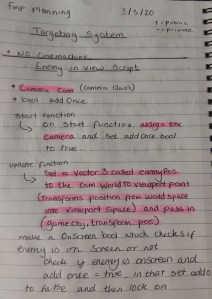 FMP planning
3/3/20
+ = public
- = private
Targeting System
* NO Cinemachine
Enemy in View Script
+ Camera Cam (camera class)
+ bool addOnce
Start function
↳ On start function, assign the
camera and set addOnce bool
to true.
update function
↳ Set a Vector 3 called enemyPos
to the cam.WorldToViewportPoint
(Transforms position from world space
into viewport space) and pass in
(gameObj, transform.pos)
make a OnScreen bool which checks if
enemy is on screen or not
check if enemy is onscreen and
add once = true, in that set addO
to false and then lock on